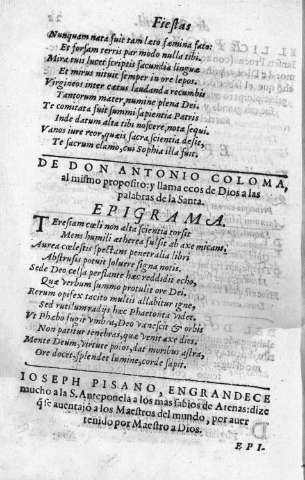 Fiestas
Nunquam nata fuit tam læto fæmina fato:
Et forsam terris par modo nulla tibi.
Mira tuis lucet scriptis facundia linguæ
Et mirus niuis semper in ore lepos.
Virgineos inter cœtus laudanda recumbis
Tantorum mater, numine plena Dei.
Te comitata fuit summi sapientia Patris
Inde datum alta tibi noscere, nota sequi.
Vanos iure reor, quais sacra scientia desit,
Te sacrum clamo, cui Sophia illa fuit.
DE DON ANTONIO COLOMA,
al mismo proposito: y llama ecos de Dios a las
palabras de la Santa.
EPIGRAMA.
TEresiam cœli non alta scientia torsit
Mens humili ætherea fulsit ab axe micans,
Aurea cœlestis spectans penetralia libri
Abstrusis potuit soluere signa notis.
Sede Deo celsa perstante hæc reddidit echo,
Quæ verbum summo protulit ore Dei.
Rerum opifex tacito multis allabitur igne,
Sed rutilum radijs hæc Phaetonta videt.
Vt Phœbo fugit vmbra, Deo vanescit & orbis
Non patitur tenebras, quæ venit axe dies.
Mente Deum, virtute polos, dat moribus astra,
Ore docet, splendet lumine, corde sapit.
IOSEPH PISANO, ENGRANDECE
mucho a la S. Anteponela a los mas sabios de Atenas: dize
q̃ se auentajò a los Maestros del mundo, por auer
tenido por Maestro a Dios.
EPI-